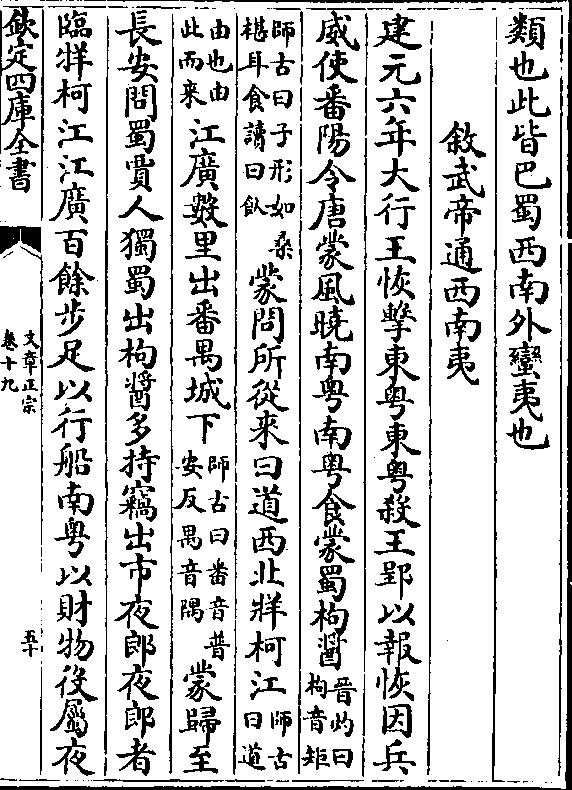 類也此皆巴蜀西南外蠻夷也
敘武帝通西南夷
建元六年大行王恢擊東粤東粤殺王郢以報恢因兵
威使番陽令唐蒙風曉南粤南粤食蒙蜀枸醬晉灼曰枸音矩
師古曰子形如桑椹耳食讀曰飤蒙問所從来曰道西北牂柯江師古曰道
由也由此而来江廣數里出番禺城下師古曰番音普安反禺音隅蒙歸至
長安問蜀賈人獨蜀出枸醬多持竊出市夜郎夜郎者
臨牂柯江江廣百餘步足以行船南粤以財物役屬夜
欽定四庫全書
文章正宗
卷十九
五十